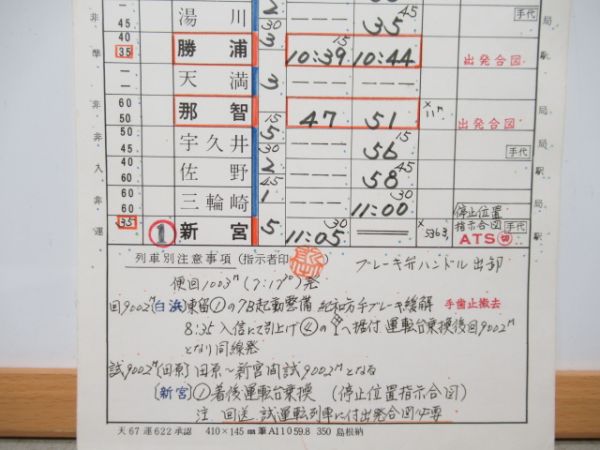 非 45 湯川 2 35 手代 局
30
準 40 35 勝浦 3 10:39 15 10:44 出発合図 駅
天満 3
非 60 50 那智 47 51 × 11ﾚ 出発合図 局
非 50 45 宇久井 15 5 56 15 手代 局
入 60 佐野 30 2 58 45 駅
非 60 60 三輪崎 45 1 11:00 30 停止位置 局
運 55 ① 新宮 5 11:05 30 × 5363 指示合図 手代 駅
ATS 切
列車別注意事項 (指示者印) ブレーキ弁ハンドル出部
便回1003ᴹ (7:17⁰) 発
回9002ᴹ [白浜] 東留①の7B起動整備 紀和方手ブレーキ緩解 手歯止撤去
8:35 入信にて引上げ④の へ据付 運転台乗換後回9002ᴹ
となり同線発
試9002ᴹ [田京] 田京～新宮間試9002ᴹとなる
[新宮] ①着後運転台乗換 (停止位置指示合図)
注 回送、試運転列車に付出発合図必要
天67運622承認 410×145㎜ 筆A110 59.8 350 島根納